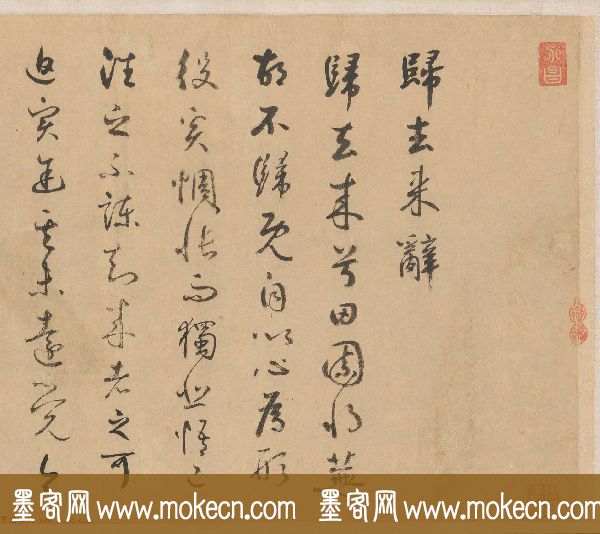 歸去来辭
歸去来兮田園将蕪
胡不歸既自以心為形
役奚惆悵而獨悲悟已
往之不諫知来者之可
追实迷其未遠覺今
墨客网 www.mokecn.com 墨客网 www.mokecn.com